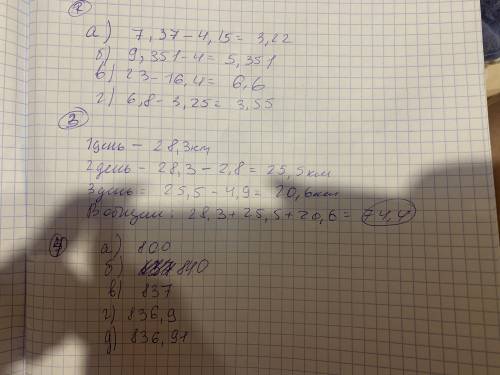 2
а) 7,37-4,15= 3,22
б) 9,351-4= 5,351
в) 23-16,4= 6,6
г) 6,8-3,25= 3,55
3
1день - 28,3км
2день - 28,3-2,8= 25,5км
3день= 25,5-4,9= 20,6км
В общем: 28,3+25,5+20,6= 74,4
4
а) 800
б) 840
в) 837
г) 836,9
д) 836,91